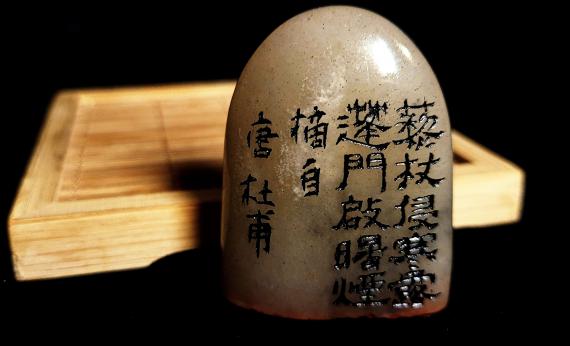 藜杖侵寒露
蓬門啟曙煙
摘自
唐杜甫